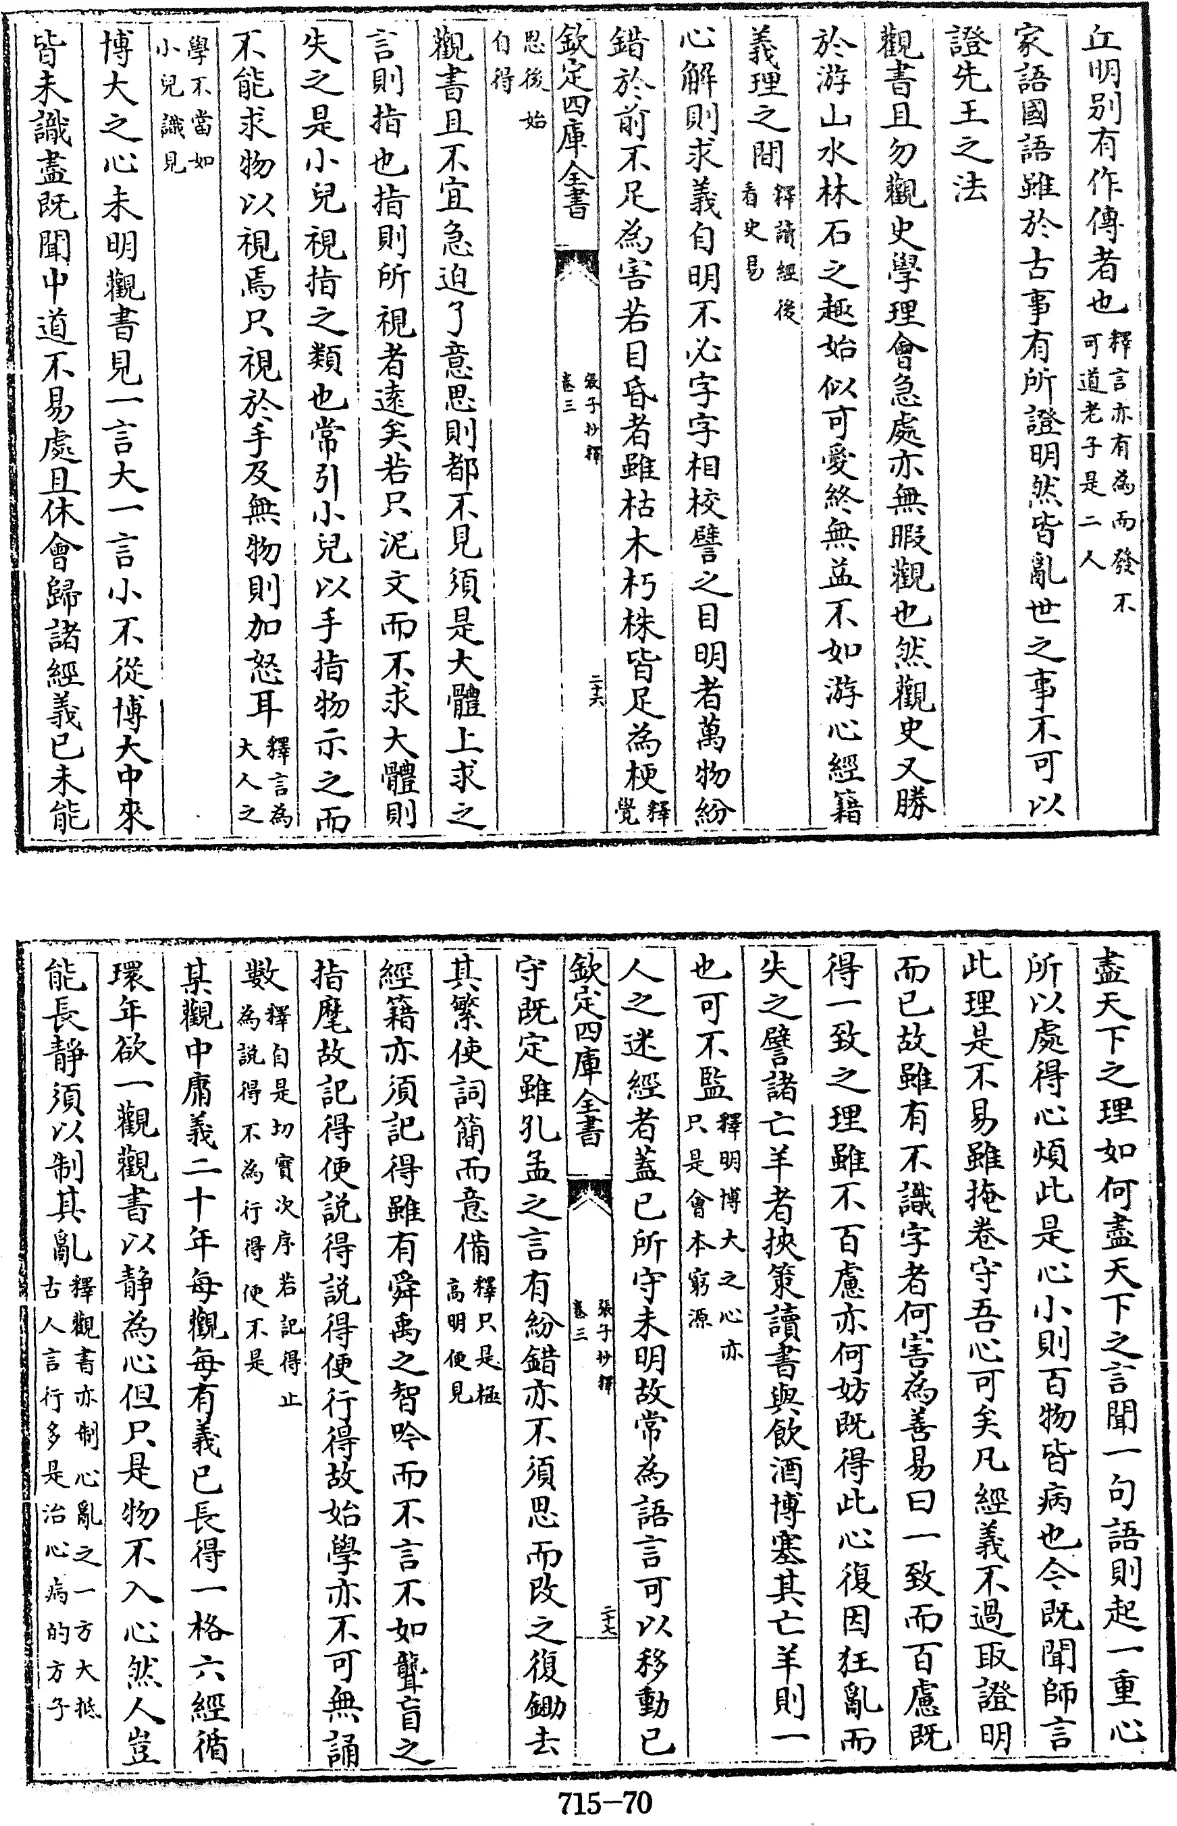 丘明别有作傳者也釋言亦有為而發不可道老子是二人
家語國語雖於古事有所證明然皆亂世之事不可以
證先王之法
觀書且勿觀史學理會急處亦無暇觀也然觀史又勝
於游山水林石之趣始似可愛終無益不如游心經籍
義理之間釋讀經後看史易
心解則求義自明不必字字相校譬之目明者萬物紛
錯於前不足為害若目昏者雖枯木朽株皆足為梗釋覺
欽定四庫全書 張子抄釋 卷三 二十六
思後始自得
觀書且不宜急迫了意思則都不見須是大體上求之
言則指也指則所視者遠矣若只泥文而不求大體則
失之是小兒視指之類也常引小兒以手指物示之而
不能求物以視焉只視於手及無物則加怒耳釋言為大人之
學不當如小兒識見
博大之心未明觀書見一言大一言小不從博大中來
皆未識盡既聞中道不易處且休會歸諸經義已未能
盡天下之理如何盡天下之言聞一句語則起一重心
所以處得心煩此是心小則百物皆病也今既聞師言
此理是不易雖掩卷守吾心可矣凡經義不過取證明
而已故雖有不識字者何害為善易曰一致而百慮既
得一致之理雖不百慮亦何妨既得此心復因狂亂而
失之譬諸亡羊者挾策讀書與飲酒博塞其亡羊則一
也可不監釋明博大之心亦只是會本窮源
人之迷經者蓋已所守未明故常為語言可以移動已
欽定四庫全書 張子抄釋 卷三 二十七
守既定雖孔孟之言有紛錯亦不須思而改之復鋤去
其繁使詞簡而意備釋只是極高明便見
經籍亦須記得雖有舜禹之智吟而不言不如聾盲之
指麾故記得便説得説得便行得故始學亦不可無誦
數釋自是切實次序若記得止為説得不為行得便不是
某觀中庸義二十年每觀每有義已長得一格六經循
環年欲一觀觀書以靜為心但只是物不入心然人豈
能長靜須以制其亂釋觀書亦制心亂之一方大抵古人言行多是治心病的方子
715-70